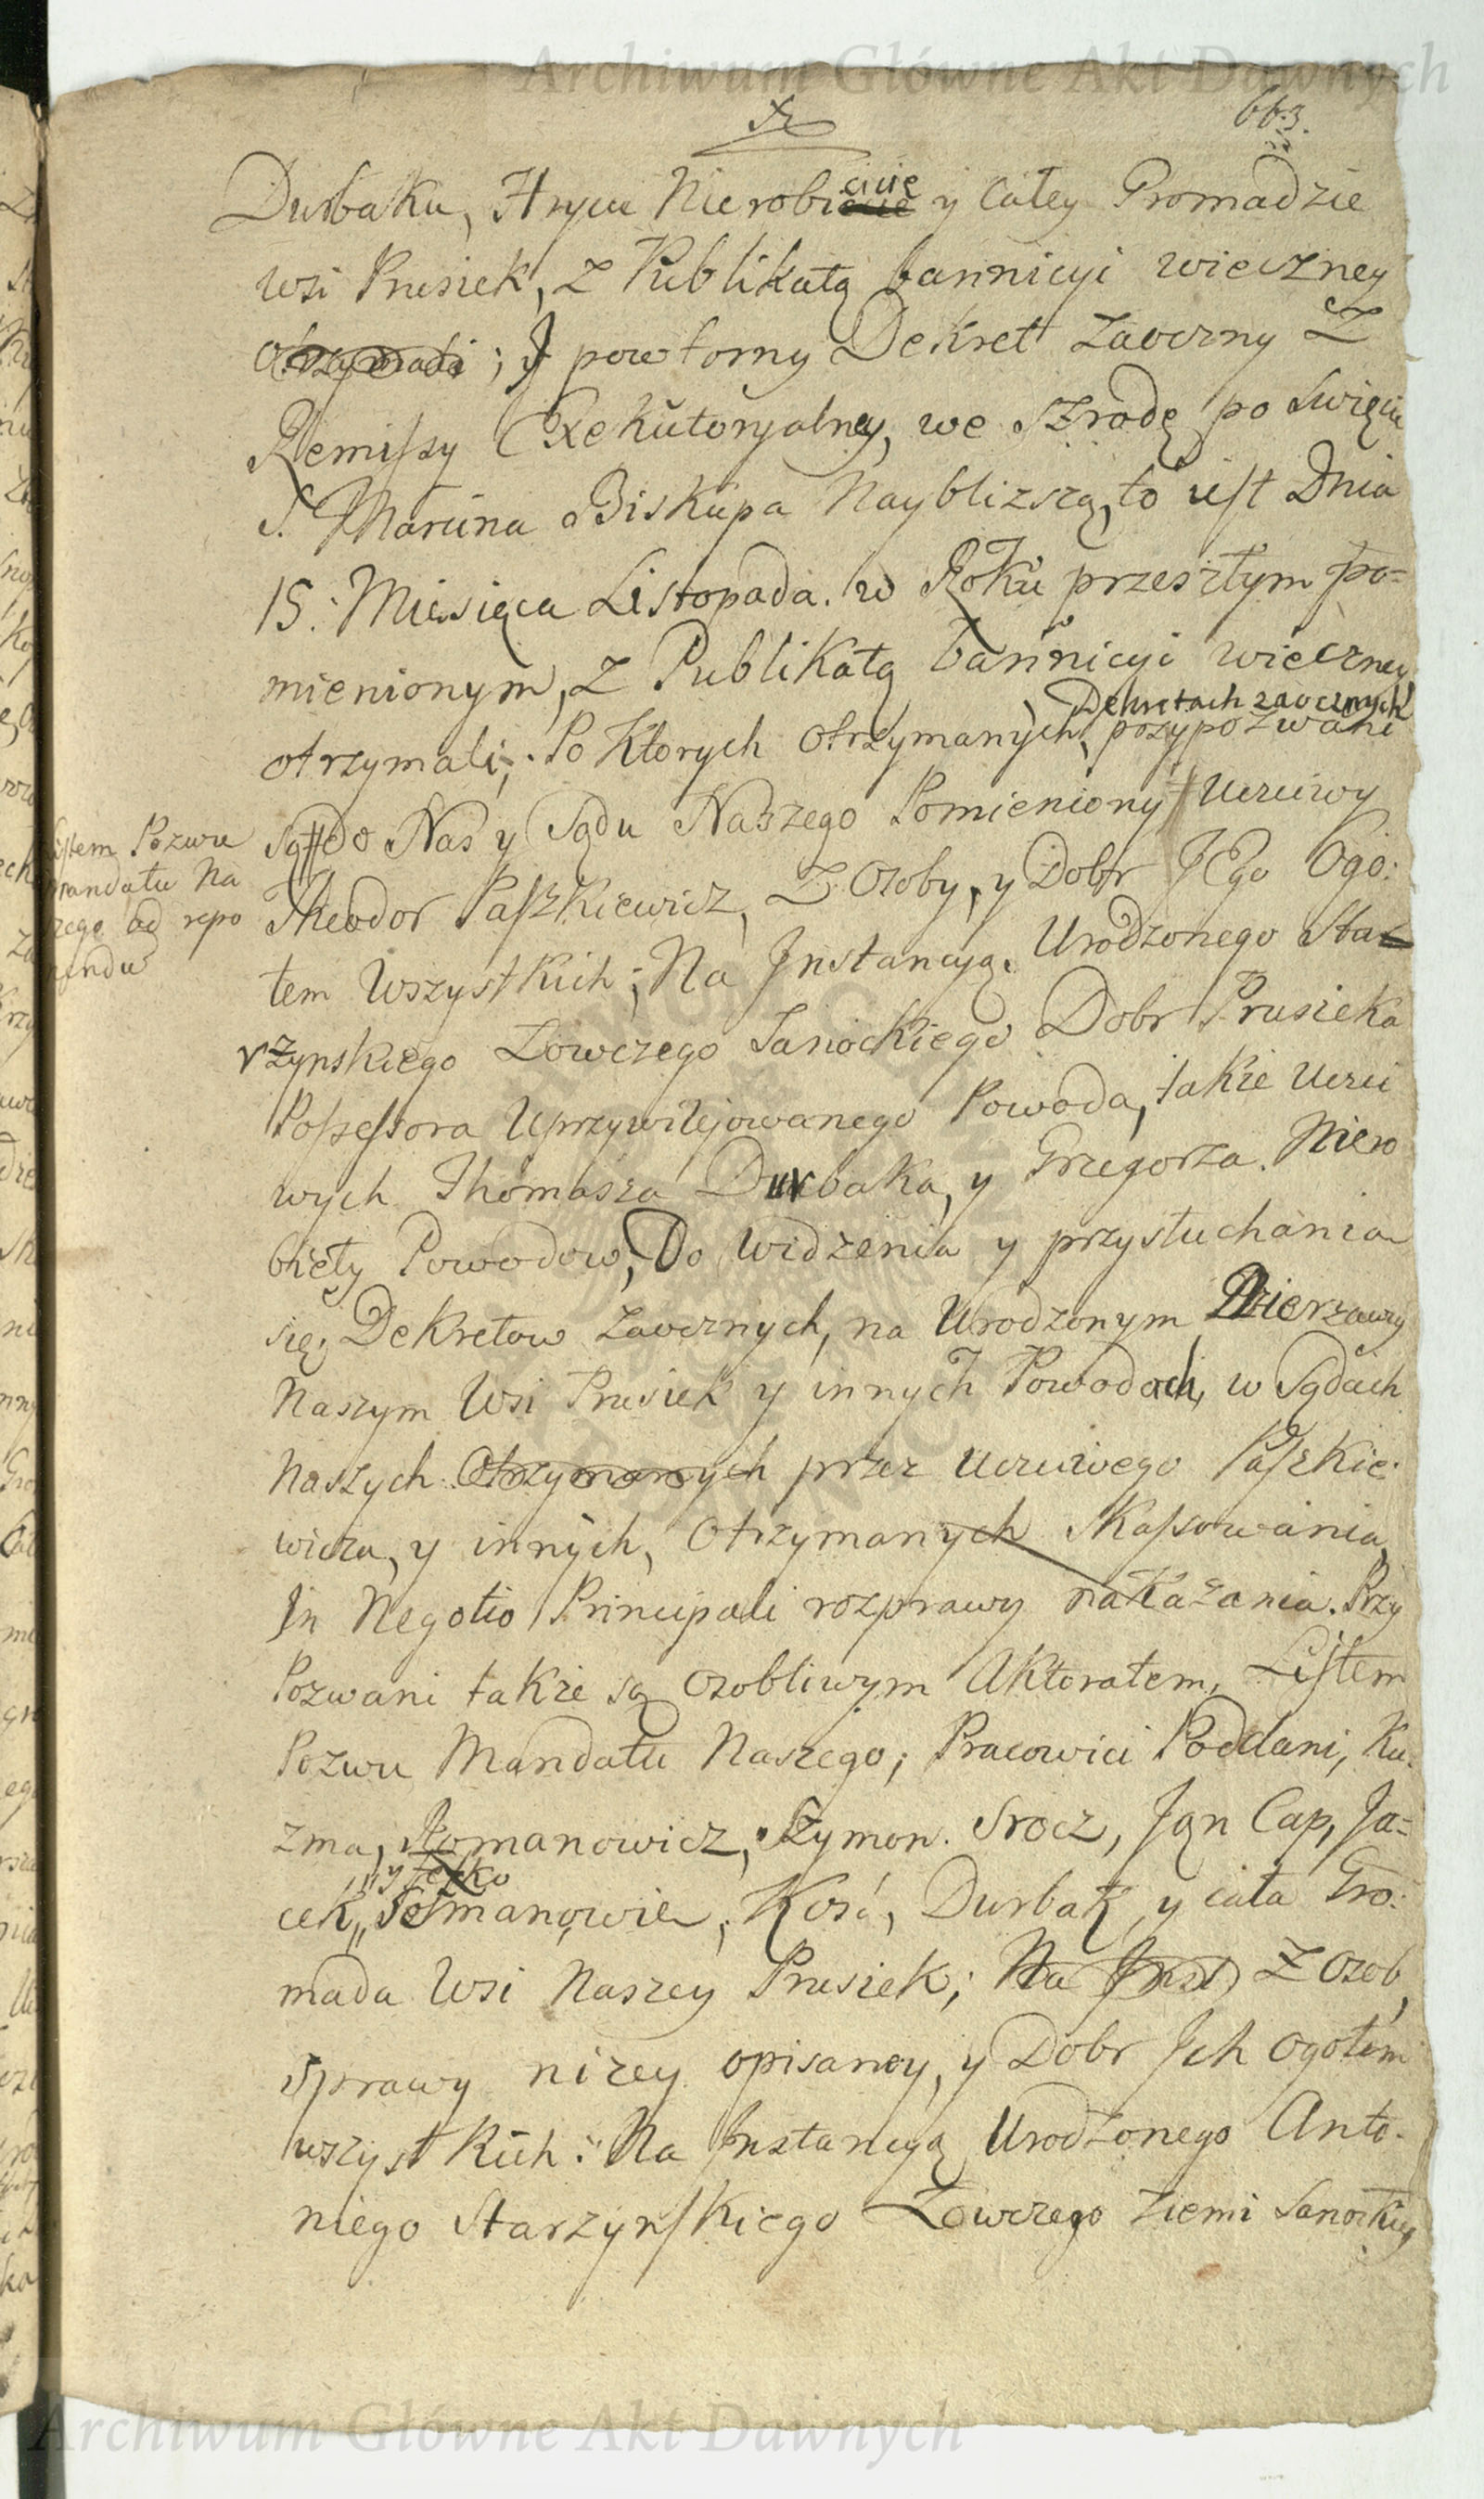 Archiwum Główne Akt Dawnych
663.
Durbaku, Hryciu Nierobi
cicie
y całey Gromadzie
wsi Prusiek, z Publikatą bannicyi wieczney
otrzymali; y powtorny Dekret zaoczny z
Remissy Exekutoryalney, we Szrodę po Swięcie
S. Marcina Biskupa Nayblizszą, to iest Dnia
15. Miesięca Listopada. w Roku przeszłym po=
mienionym, z Publikatą bannicyi wieczney
otrzymali; Po ktorych otrzymanych
Dekretach zaocznych
przypozwani
są do Nas y Sądu Naszego Pomieniony Uczciwy
Listem Pozwu
mandatu Na
szego ad repo
nendu
Theodor Paszkiewicz, z Osoby, y Dobr JEgo Ogo:
łem Wszystkich; Na Jnstancyą Urodzonego Sta
rzynskiego Łowczego Sanockiego Dobr Prusieka
Possessora Uprzywilejowanego Powoda, także Uczci
wych Thomasza Durbaka, y Grzegorza Niero
biety Powodow, Do widzenia y przysłuchania
się, Dekretow zaocznych, na Urodzonym Dzierzawcy
Naszym Wsi Prusiek y innych Powodach, w Sądach
Naszych Otrzymanych przez Uczciwego Paszkie:
wicza, y innych, Otrzymanych Skassowania,
In Negotio Principali rozprawy nakazania. Przy
Pozwani także są osobliwym Aktoratem, Listem
Pozwu Mandatu Naszego; Pracowici Poddani, Ku
zma, Romanowicz, Szymon Srocz, Jan Cap, Ja=
y Fezko
cek, Romanowie, Kość, Durbak, y cała Gro:
mada Wsi Naszey Prusiek; Na Jnst z Osob,
sprawy niżey opisaney, y Dobr Jch ogołem
wszystkich: Na Jnstancyą Urodzonego Anto-
niego Starzynskiego Łowczego Ziemi Sanockiey
Archiwum Główne Akt Dawnych